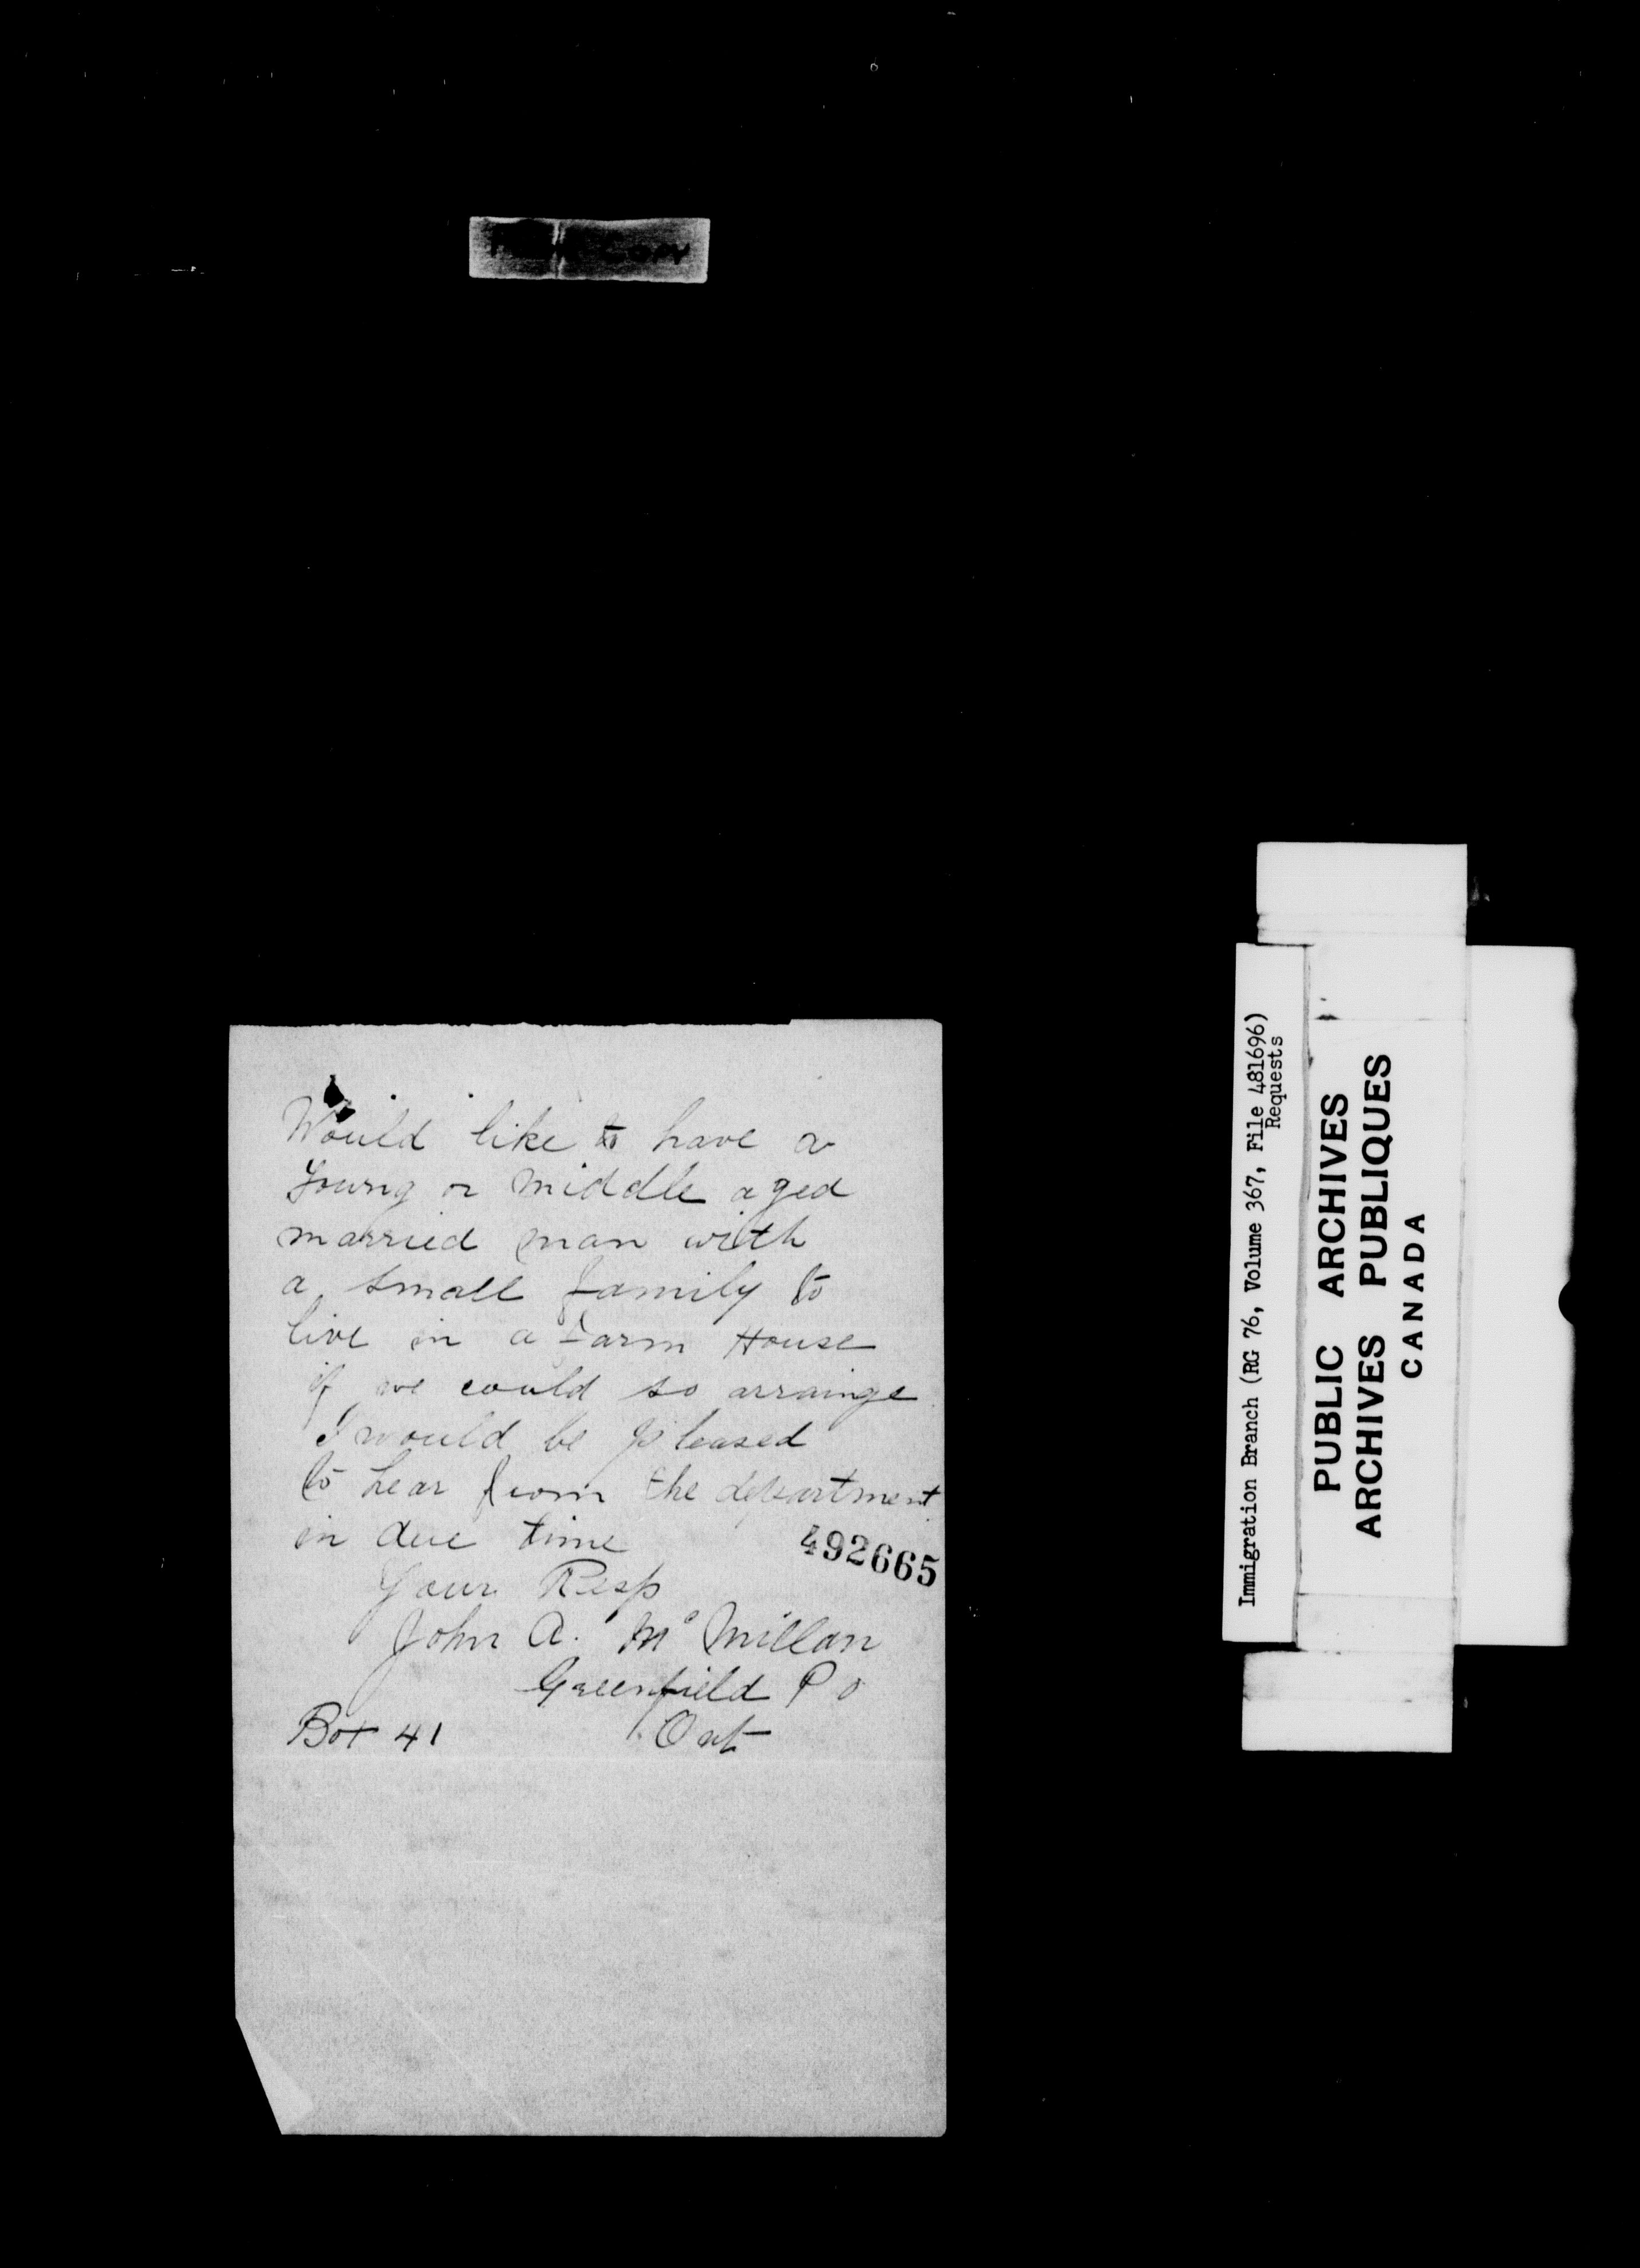 Would like to have a
Young or middle aged
married man with
a small family to
live in a Farm House
if we could so arrainge
I would be pleased
to hear from the department
in due time
492665
Your Resp
John A. Mc Millan
Greenfield P O
Box 41 Ont
Immigration Branch (RG 76, Volume 367, File 481696)
Requests
PUBLIC ARCHIVES
ARCHIVES PUBLIQUES
CANADA